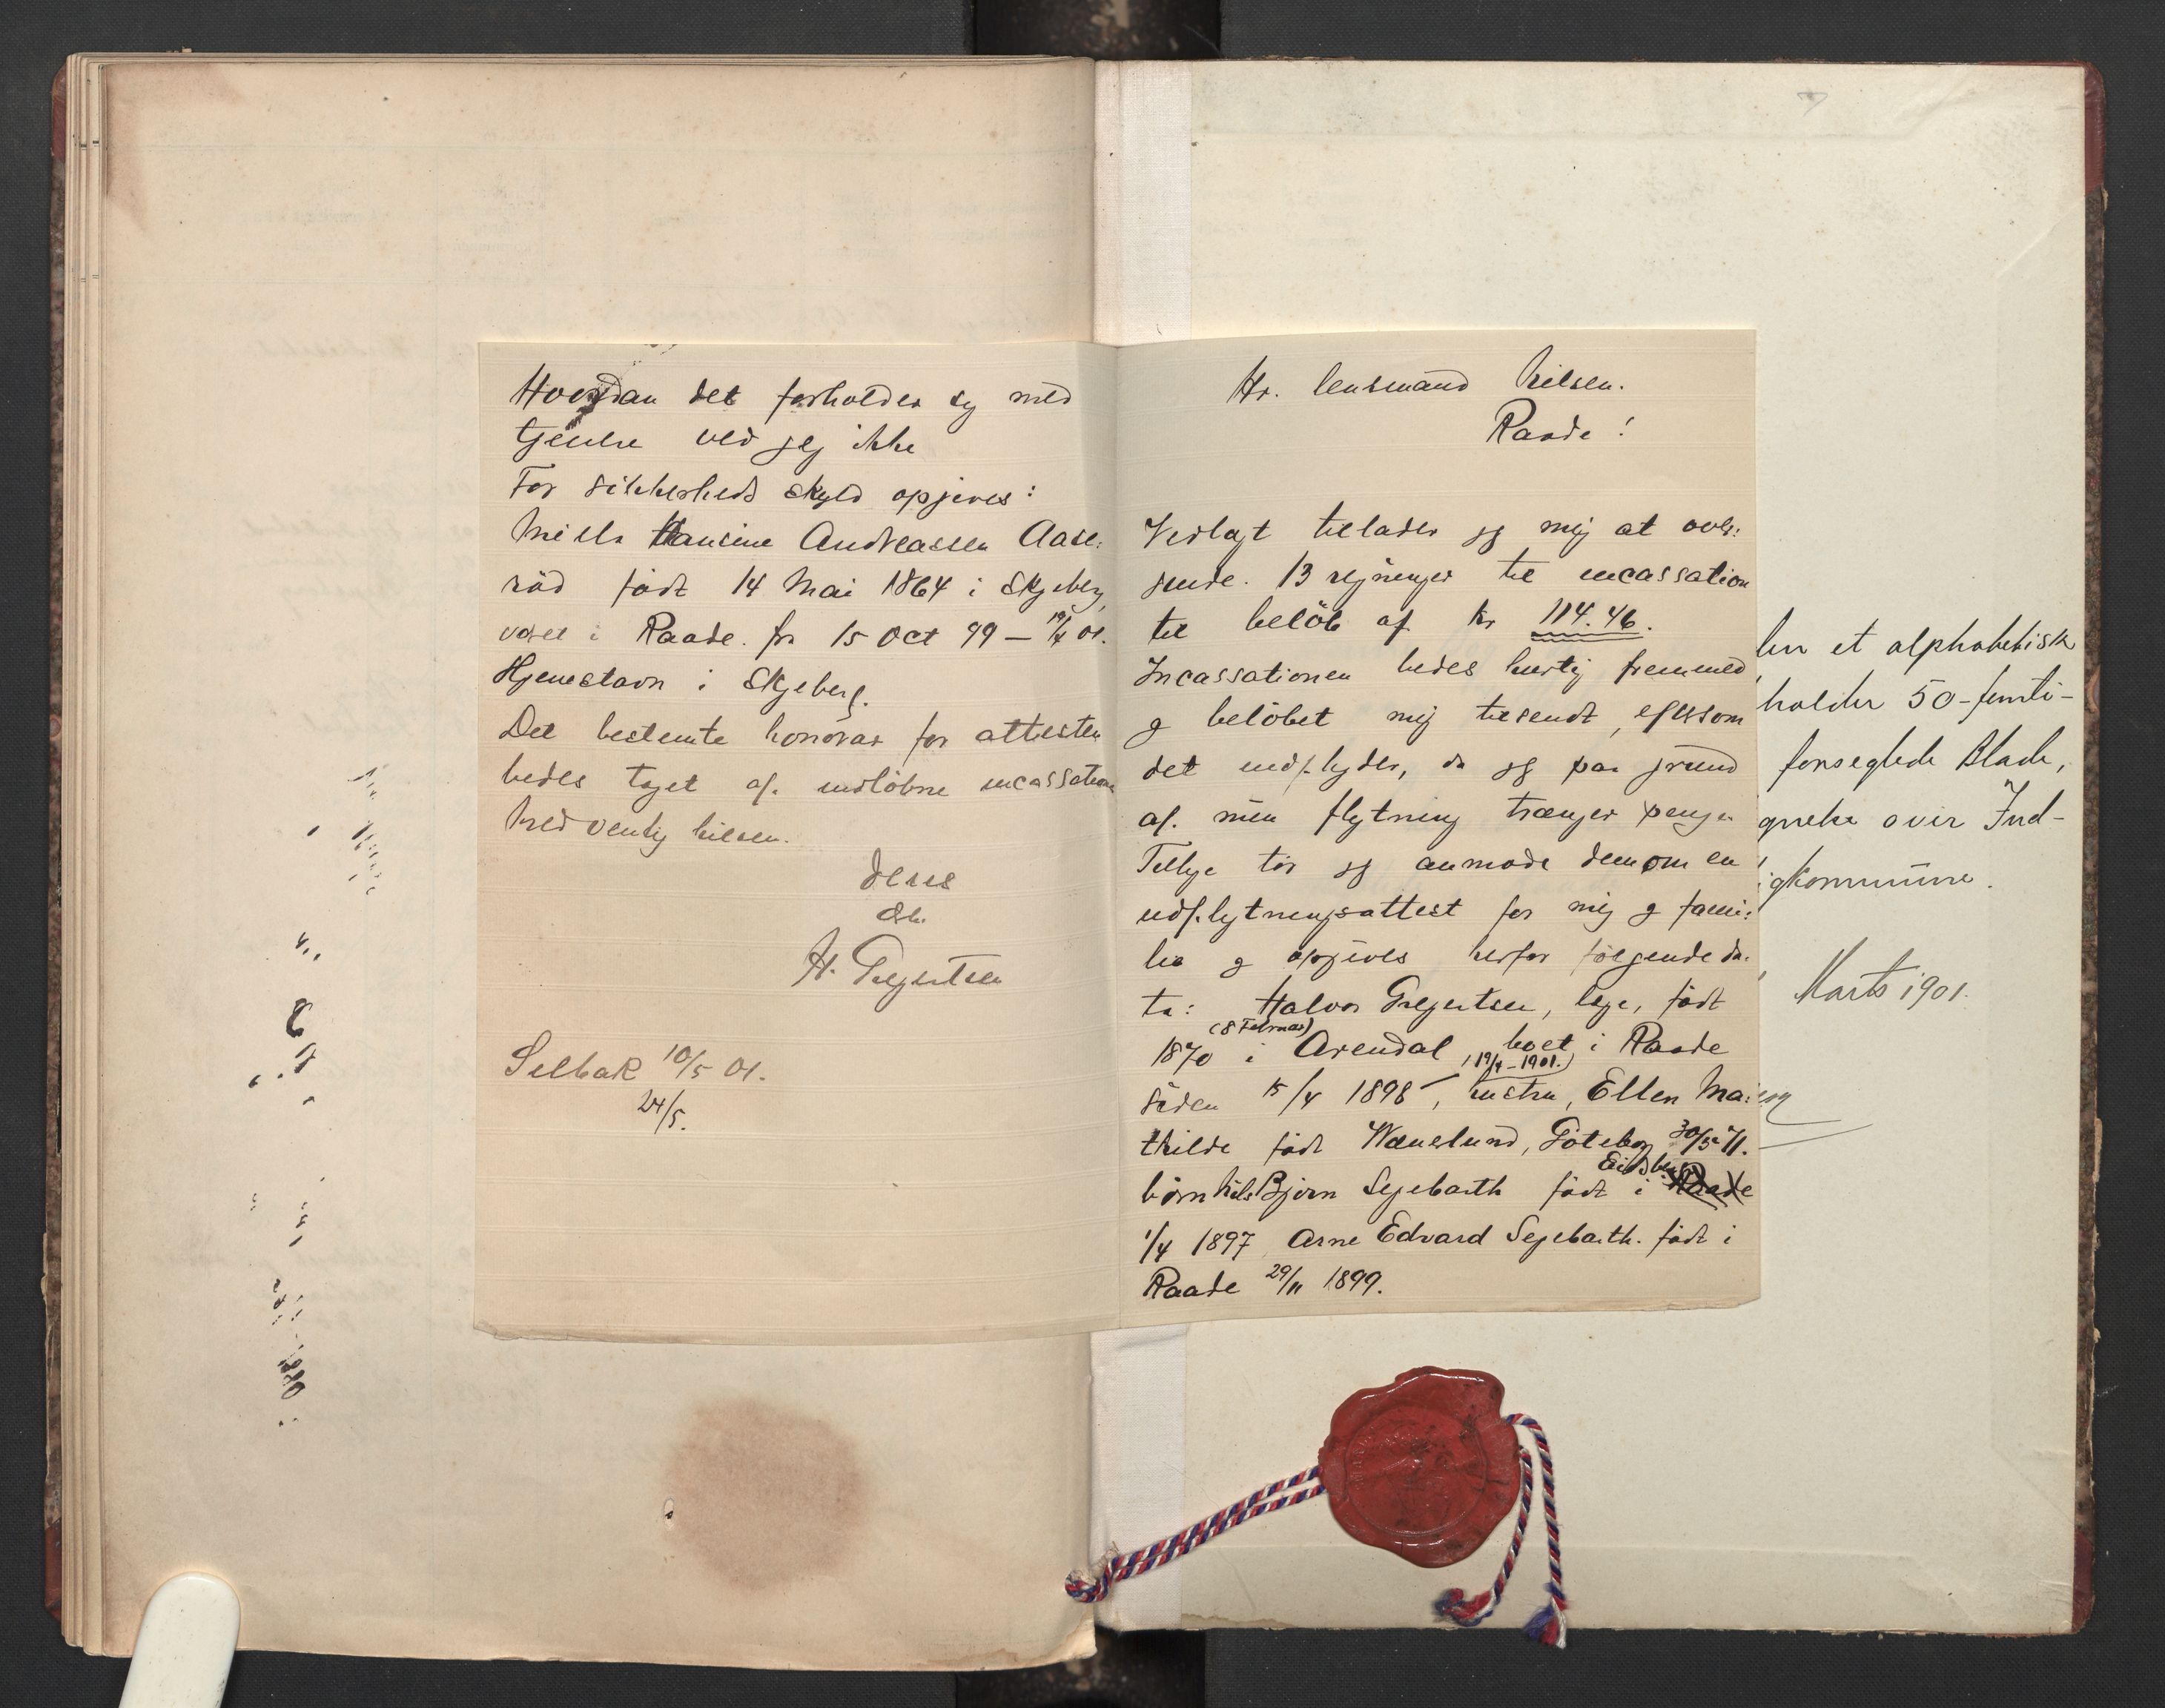 Hr. lensmand Nilsen.
Raade!
Vedlagt tillader jeg mig at over:
sende. 13 regninger til incassation
til beløb af kr 114.46.
Incassationen bedes hurtig fremmed
g beløbet mig tilsendt, eftersom
det indflyder, da jeg paa grund
af. min flytning trænger penge
Tillige tør jeg anmode dem om en
udflytningsattest for mig g fami:
lie g opgives herfor følgende da:
ta: Halvor Gregertsen, læge, født
1870 (8 Februar) i Arendal, boet i Raade
siden 15/4 1898 – (19/4 – 1901.), hustru, Ellen Ma:
thilde født Wænelund, Göteborg 30/5 71.
børn Nils Bjørn Segebarth født i Eidsberg Raade
1/4 1897, Arne Edvard Segebarth. født i
Raade 29/11 1899.
Hvordan det forholder sig med
tjenere ved jeg ikke
For sikkerheds skyld opgives:
Milla Hansine Andreassen Aase:
rød født 14 Mai 1864 i Skjeberg,
været i Raade. fra 15 Oct 99 – 19/4 01.
Hjemstavn i Skjeberg.
Det bestemte honorar for attesten
bedes taget af. indløbne incassation
Med venlig hilsen.
Deres
H. Gregertsen
Selbak 10/5 01.
24/5.
et alphabetisk
holder 50-femti-
forseglede Blade,
over Ind-
Marts 1901.